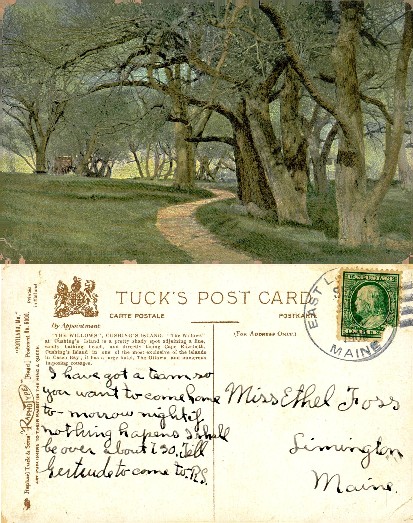 TUCK'S POST CARD
CARTE POSTALE
POSTKARTE
By Appointment
(FOR ADDRESS ONLY.)
"THE WILLOWS", CUSHING'S ISLAND. "The Willows"
at Cushing's Island is a pretty shady spot adjoining a fine,
sandy bathing beach, and directly facing Cape Elizabeth.
Cushing's Island is one of the most exclusive of the Islands
in Casco Bay; it has a large hotel, The Ottawa and numerous
imposing cottages.
EAST L
MAINE
I have got a team so
you want to come home
to-morrow night if
nothing hapens I shall
be over about 7.30. Tell
Gertrude to come to. P.S.
Miss Ethel Foss
Limington
Maine.